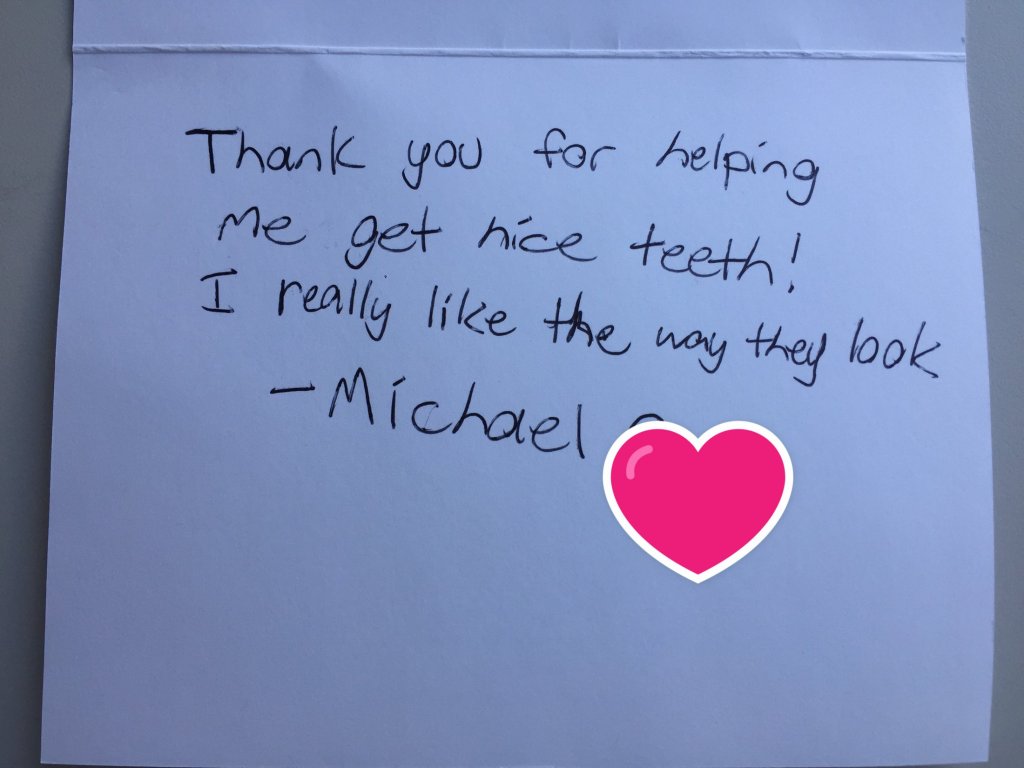 Thank you for helping
me get nice teeth!
I really like the way they look
- Michael